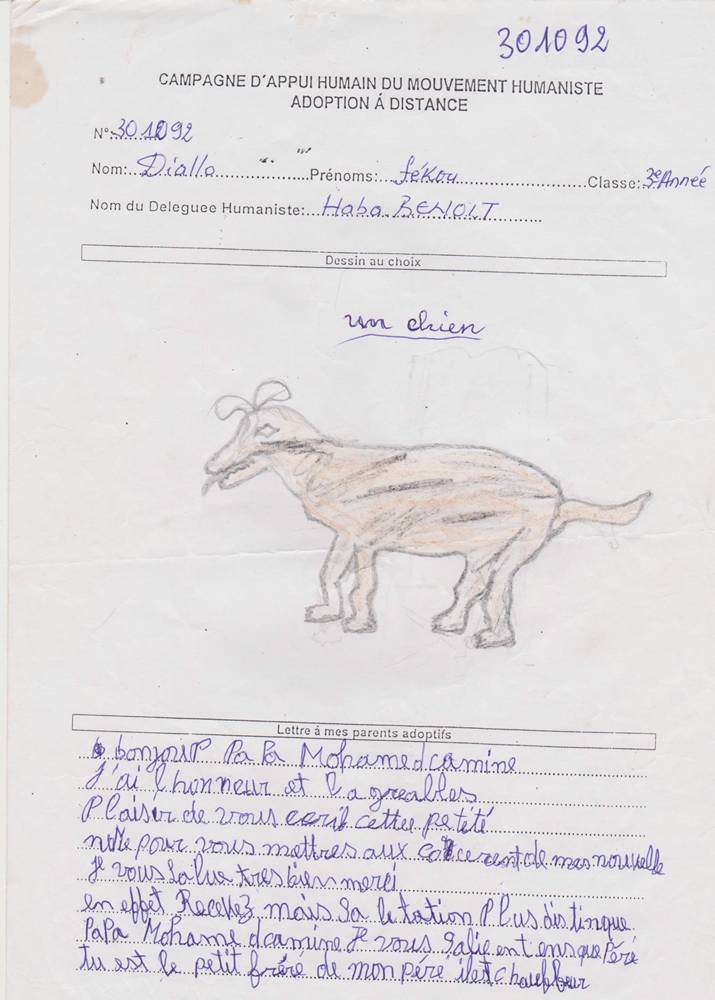 301092
CAMPAGNE D'APPUI HUMAIN DU MOUVEMENT HUMANISTE
ADOPTION Á DISTANCE
N°:301092
Nom: Diallo Prénoms: fékou Classe: 3e Année
Nom du Deleguee Humaniste: Haba BENOIT
Dessin au choix
un chien
Lettre á mes parents adoptifs
bonjour PaPa Mohamedcamine
J'ai lhonneur et lagreables
Plaisir de vous ecrit cettee petité
note pour vous mettres aux de mes nouvelle
Je vous salue tres bien merci
en effet Recevez mais salutation Plus distingue
PaPa Mohamedcamine Je vous en tensque Péré
tu est le petit fréré de mon péré ilest chauffeur